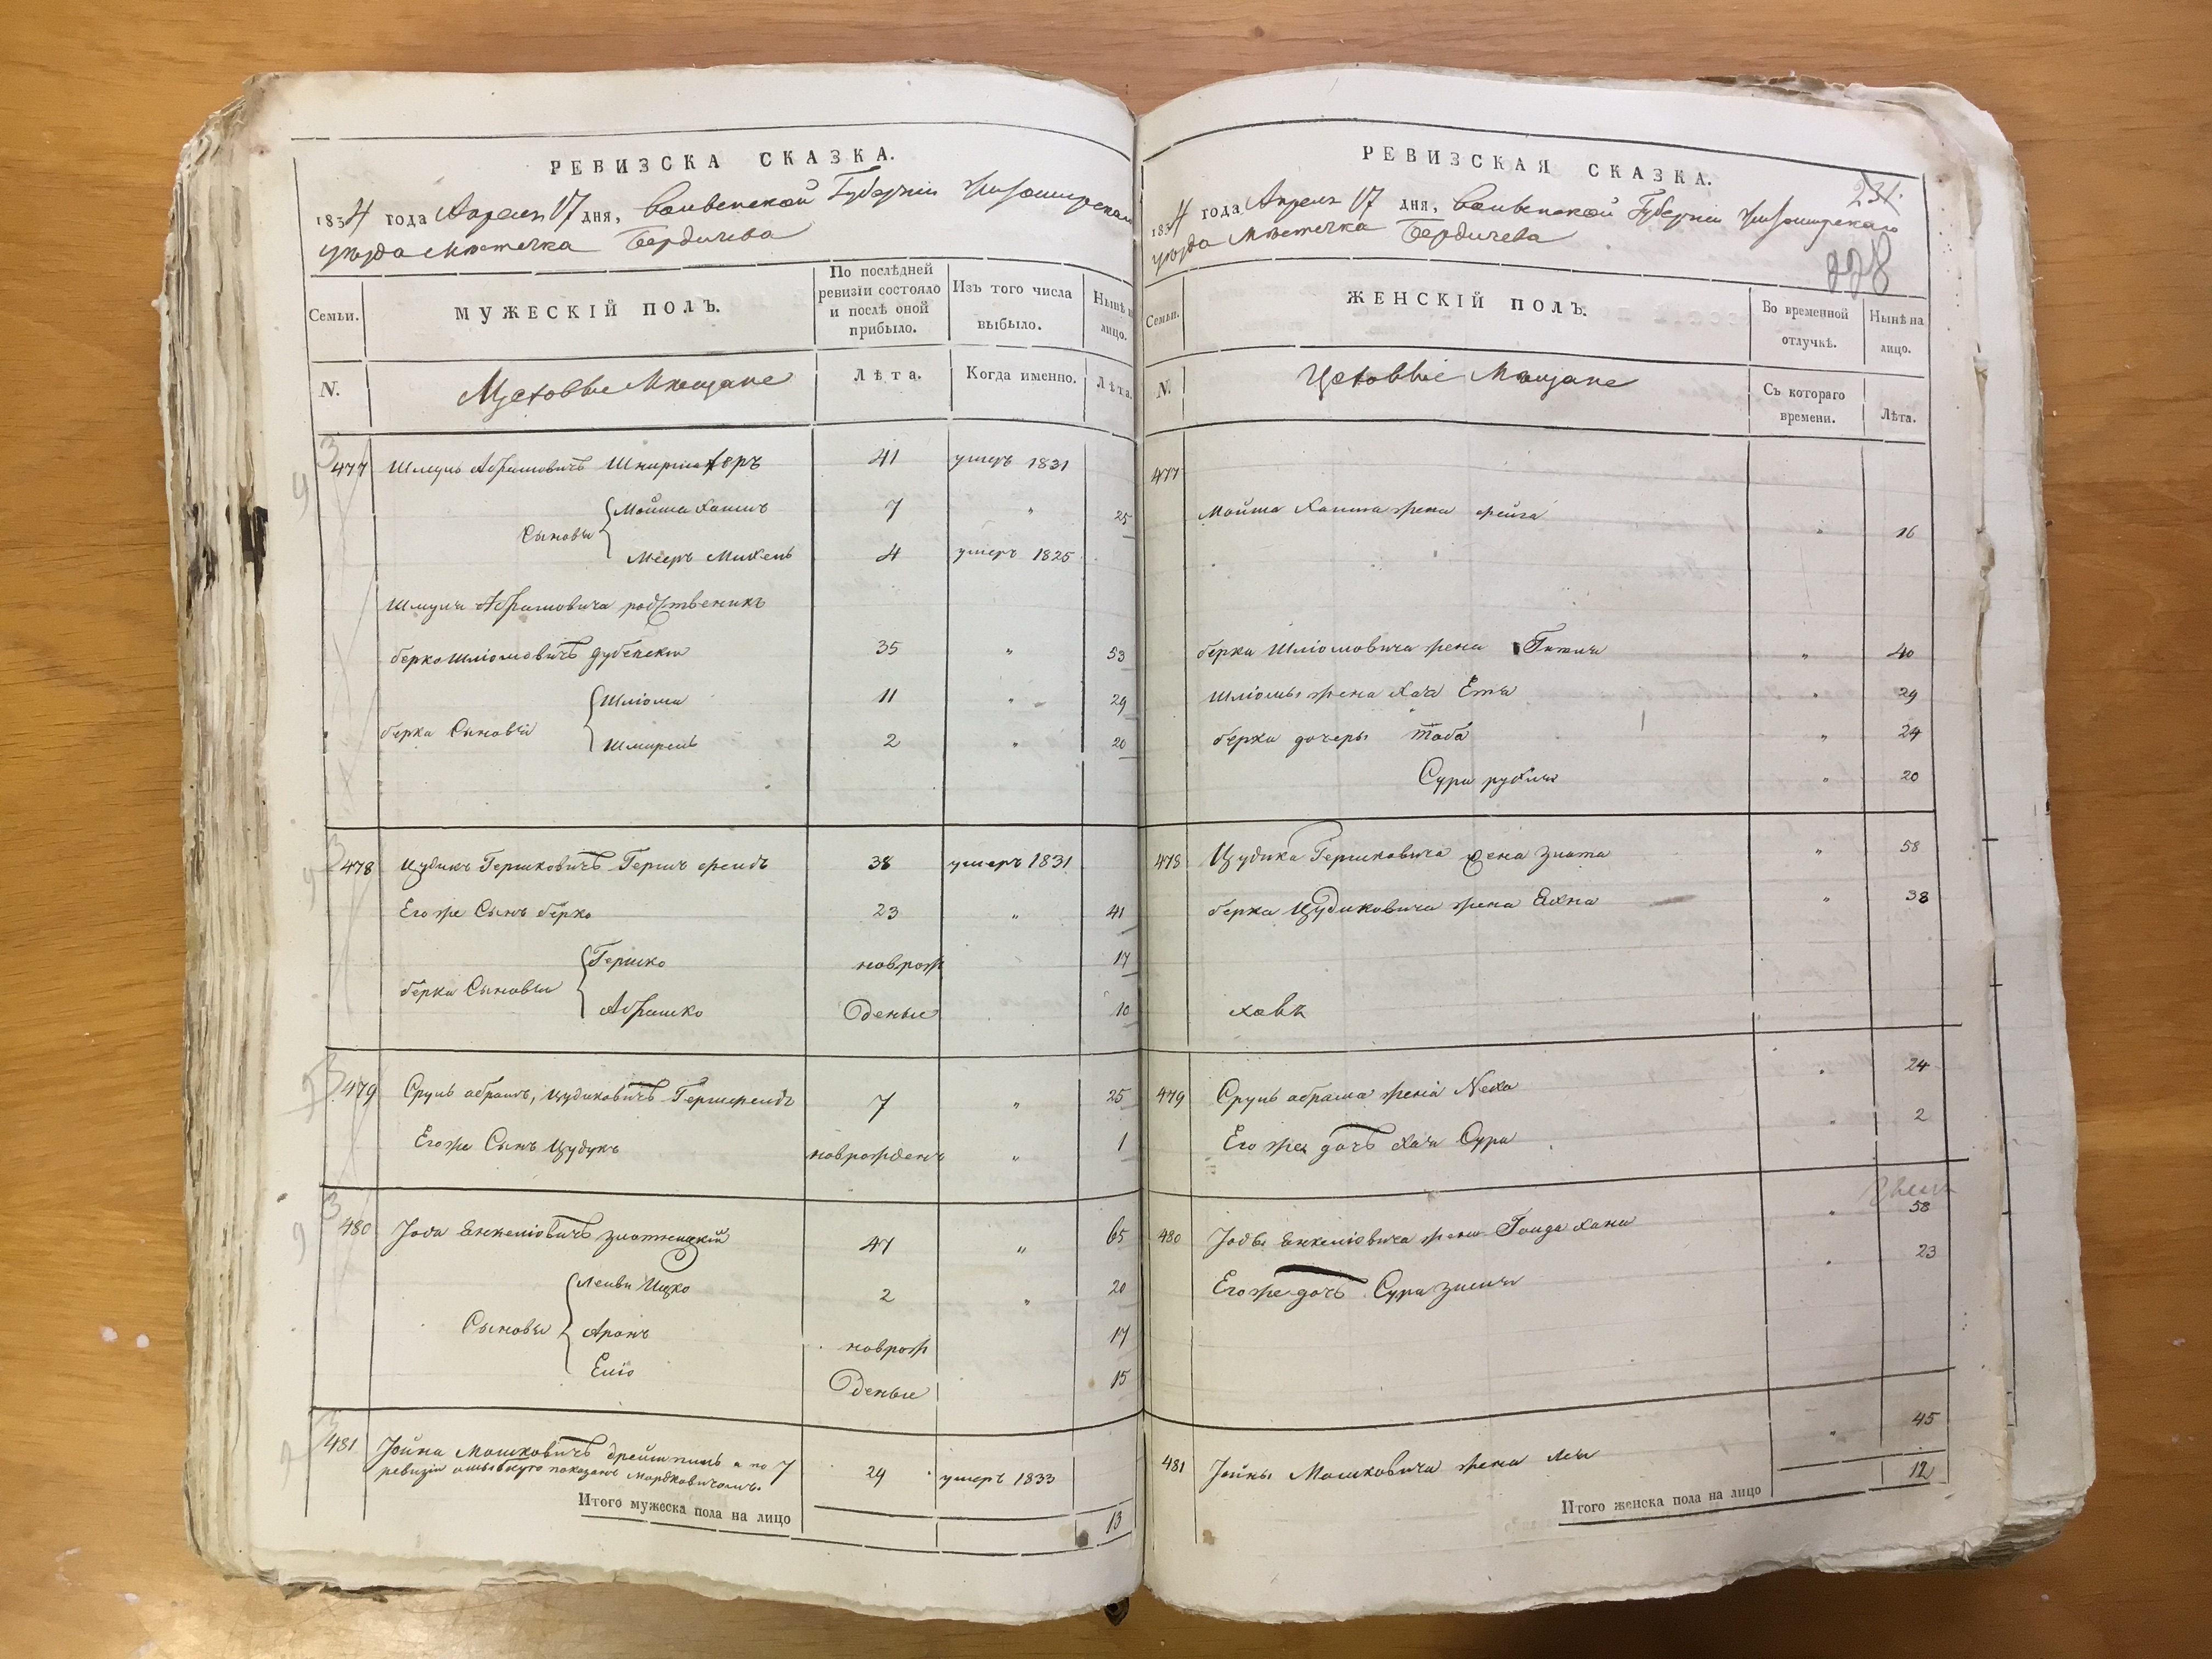 РЕВИЗСКА СКАЗКА.
1834 года Апреля 17 дня, Волынской Губерніи Житомирскаго
уѣзда мѣстечка Бердичева
Семьи.
МУЖЕСКІЙ ПОЛЪ.
По послѣдней ревизіи состояло и послѣ оной прибыло.
Изъ того числа выбыло.
Нынѣ на лицо.
N.
Цеховые Мѣщане
Лѣта.
Когда именно.
Лѣта.
477 Шмуль Абрамовичъ 41 умеръ 1831
Сыновья Мойша Хаимъ 7 " 25
Мееръ Михель 4 умеръ 1825
Шмуля Абрамовича родственникъ
берко Шліомовичъ дубенскій 35 " 53
берка Сыновья Шліома 11 " 29
Шмарель 2 " 20
478 Цудикъ Гершковичъ 38 умеръ 1831
Его же Сынъ берко 23 " 41
берка Сыновья Гершко новрож 17
Абрашко деные 10
479 Сруль абрамъ, Цудиковичъ 7 " 25
Его же Сынъ Цудукъ новрожденъ " 1
480 Іося Янкеліовичъ злотницкій 47 " 65
Сыновья Лейви Ицко 2 " 20
Аронъ новрож 17
Еліо деные 15
481 Іойна Мошковичъ а по 7
ревизіи ошибкую показанъ Мордковичомъ. 24 умеръ 1833
Итого мужеска пола на лицо 13
РЕВИЗСКАЯ СКАЗКА.
231.
1834 года Апреля 17 дня, Волынской Губерніи Житомирскаго
уѣзда Мѣстечка Бердичева
228
Семьи.
ЖЕНСКІЙ ПОЛЪ.
Во временной отлучкѣ.
Нынѣ на лицо.
N.
Цеховые Мѣщане
Съ котораго времени.
Лѣта.
477
Мойша Хаима жена фейга " 16
берка Шліомовича жена Гитля " 40
Шліомы жена Хая Етя " 29
берка дочеры Тоба " 24
Сура рухля " 20
478 Цудика Гершковича жена злота " 58
берка Цудиковича жена Яхна " 38
479 Сруль абрама жена Неха " 24
Его же дочъ Хая Сура " 2
480 Янкеліовича жена Голда Хана " 58
Его же дочъ Сура зисля " 23
481 Іойны Мошковича жена лея " 45
Итого женска пола на лицо 12